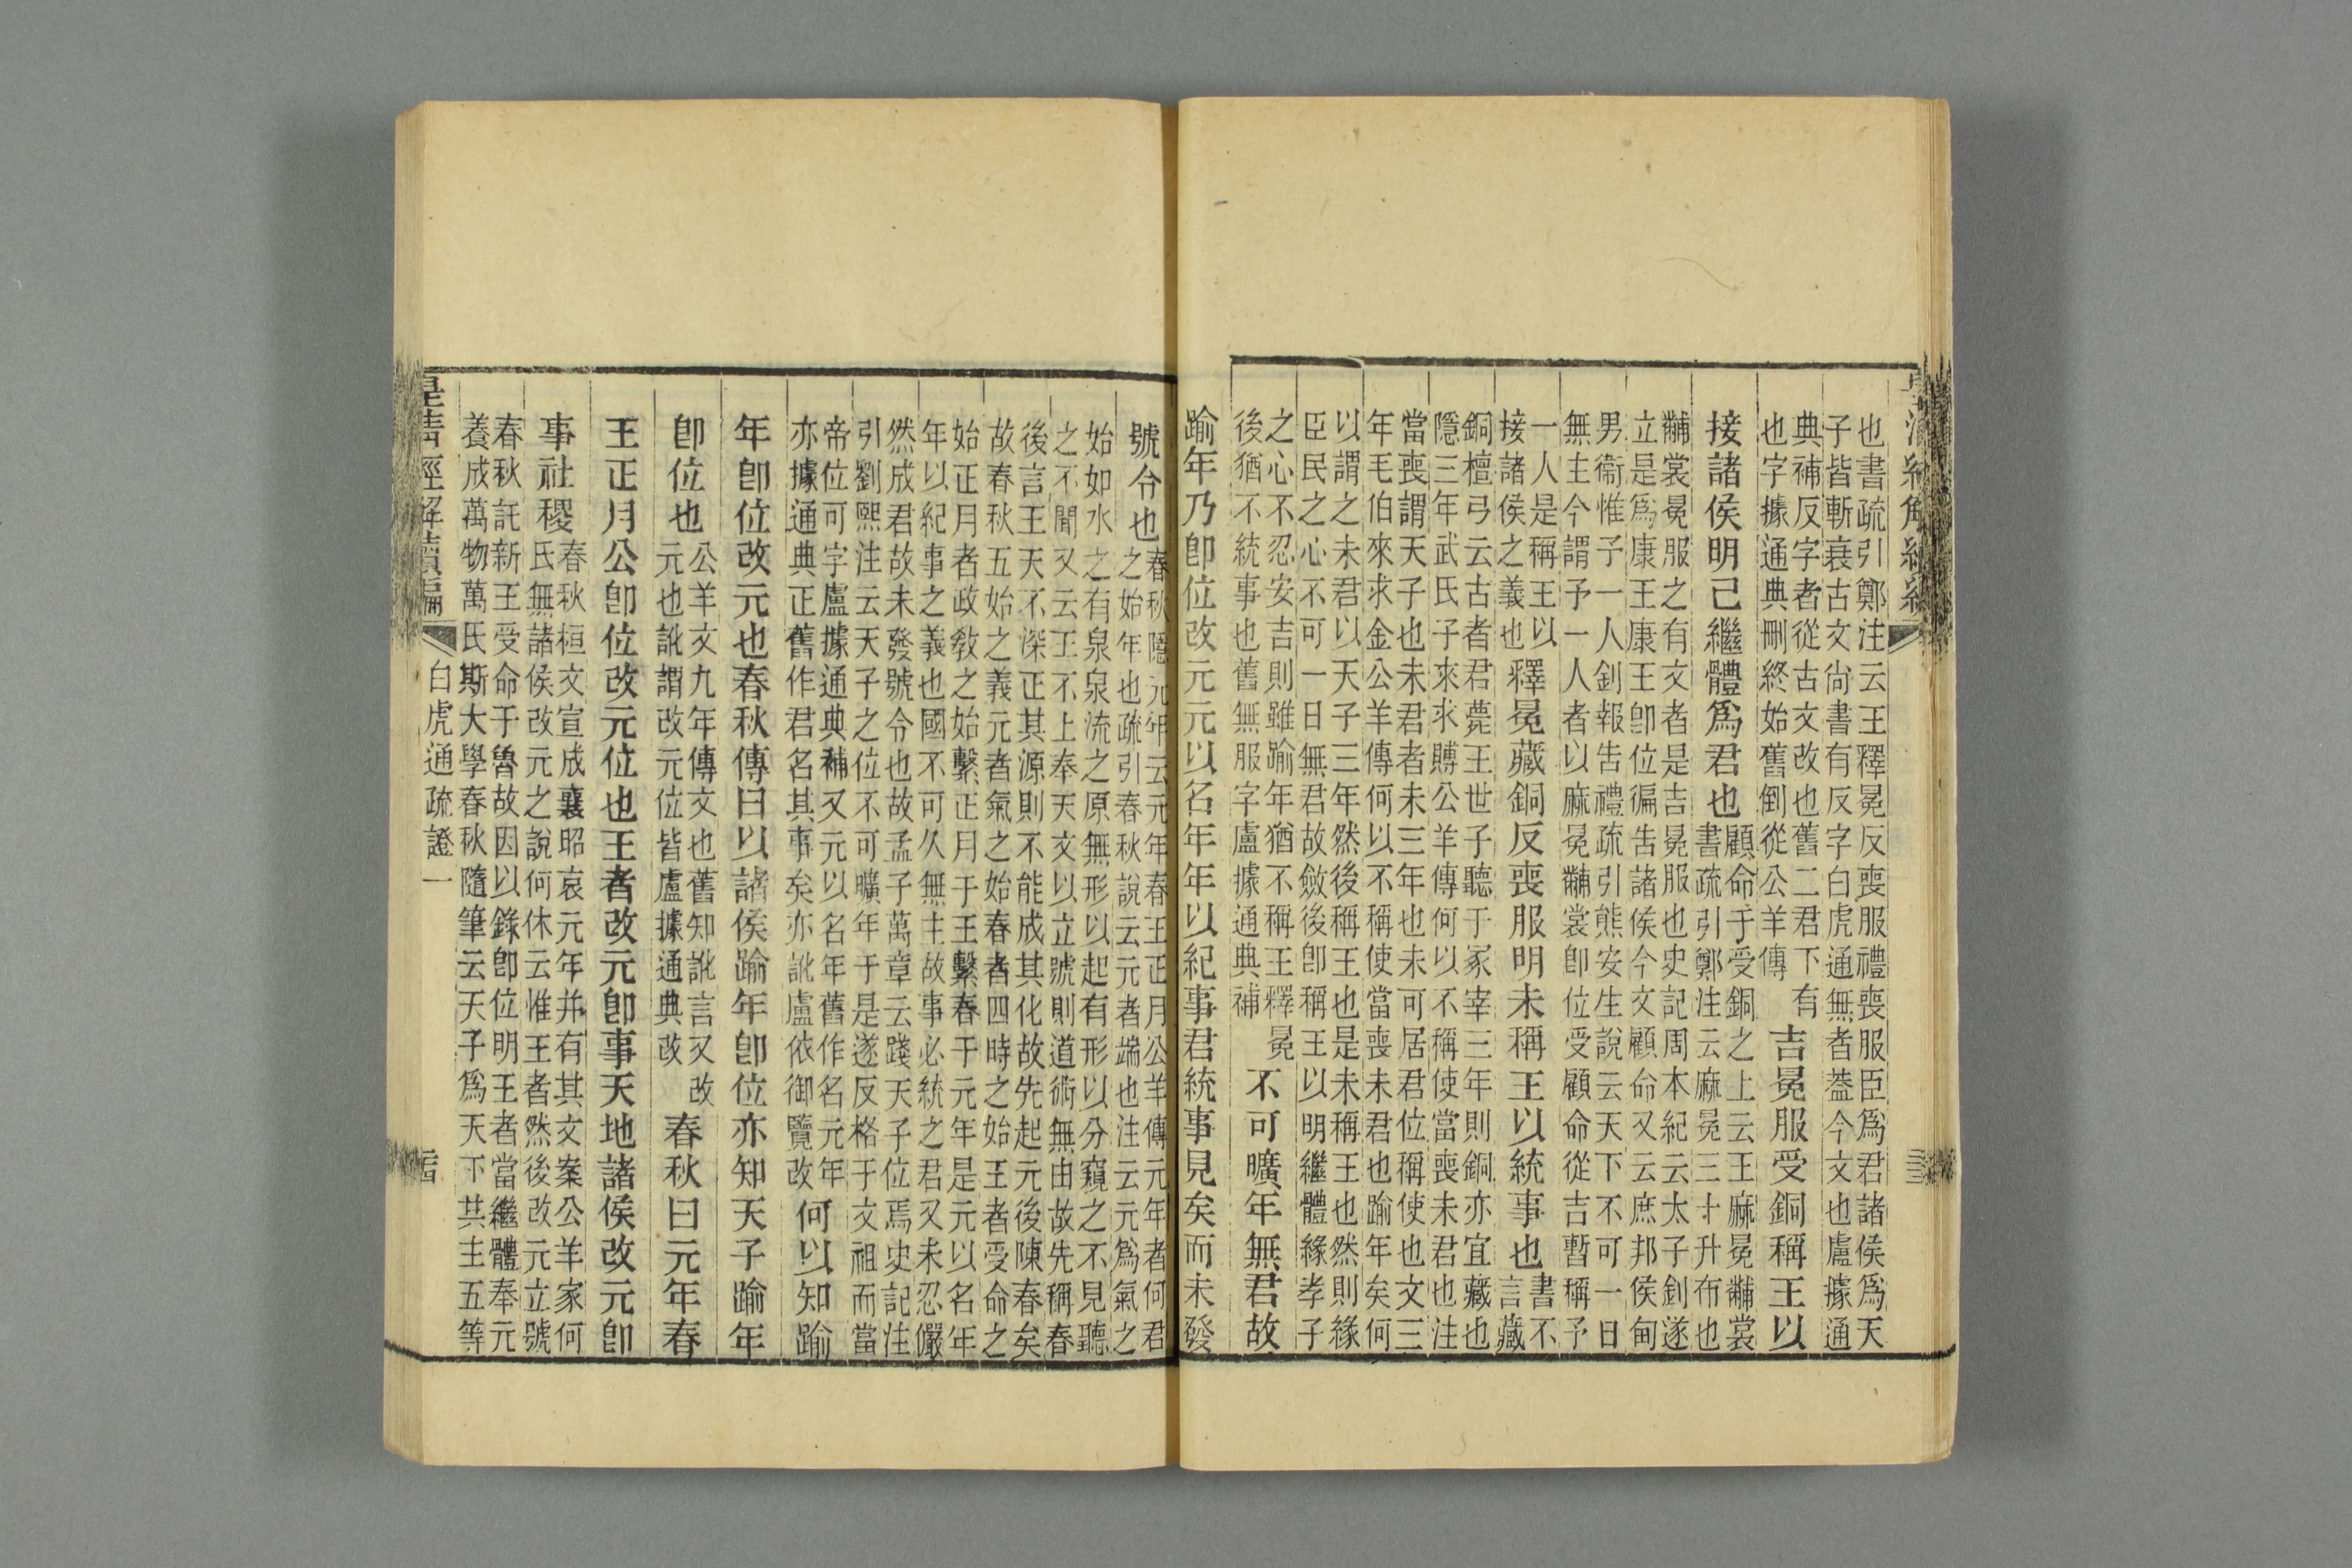 皇清經解續編
也書疏引鄭注云王釋冕反喪服禮喪服臣爲君諸侯爲天
子皆斬衰古文尚書有反字白虎通無者葢今文也盧據通
典補反字者從古文改也舊二君下有
也字據通典刪終始舊倒從公羊傳
吉冕服受銅稱王以
接諸侯明己繼體爲君也
顧命于受銅之上云王麻冕黼裳
書疏引鄭注云麻冕三十升布也
黼裳冕服之有文者是吉冕服也史記周本紀云太子釗遂
立是爲康王康王卽位徧告諸侯今文顧命又云庶邦侯甸
男衞惟予一人釗報告禮疏引熊安生說云天下不可一日
無主今謂予一人者以麻冕黼裳卽位受顧命從吉暫稱予
一人是稱王以
接諸侯之義也
釋冕藏銅反喪服明未稱王以統事也
書不
言藏
銅檀弓云古者君薨王世子聽于冢宰三年則銅亦宜藏也
隱三年武氏子來求賻公羊傳何以不稱使當喪未君也注
當喪謂天子也未君者未三年也未可居君位稱使也文三
年毛伯來求金公羊傳何以不稱使當喪未君也踰年矣何
以謂之未君以天子三年然後稱王也是未稱王也然則緣
臣民之心不可一日無君故斂後卽稱王以明繼體緣孝子
之心不忍安吉則雖踰年猶不稱王釋冕
後猶不統事也舊無服字盧據通典補
不可曠年無君故
踰年乃卽位改元元以名年年以紀事君統事見矣而未發
號令也
春秋隱元年云元年春王正月公羊傳元年者何君
之始年也疏引春秋說云元者端也注云元爲氣之
始如水之有泉泉流之原無形以起有形以分窺之不見聽
之不聞又云王不上奉天文以立號則道術無由故先稱春
後言王天不深正其源則不能成其化故先起元後陳春矣
故春秋五始之義元者氣之始春者四時之始王者受命之
始正月者政敎之始繫正月于王繫春于元年是元以名年
年以紀事之義也國不可久無主故事必統之君又未忍儼
然成君故未發號令也故孟子萬章云踐天子位焉史記注
引劉熙注云天子之位不可曠年于是遂反格于文祖而當
帝位可字盧據通典補又元以名年舊作名元年
亦據通典正舊作君名其事矣亦訛盧依御覽改
何以知踰
年卽位改元也春秋傳曰以諸侯踰年卽位亦知天子踰年
卽位也
公羊文九年傳文也舊知訛言又改
元也訛謂改元位皆盧據通典改
春秋曰元年春
王正月公卽位改元位也王者改元卽事天地諸侯改元卽
事社稷
春秋桓文宣成襄昭哀元年并有其文案公羊家何
氏無諸侯改元之說何休云惟王者然後改元立號
春秋託新王受命于魯故因以錄卽位明王者當繼體奉元
養成萬物萬氏斯大學春秋隨筆云天子爲天下共主五等
皇淸經解續編
白虎通疏證一